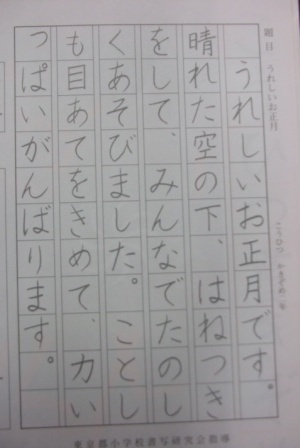 題目　うれしいお正月
うれしいお正月です。
晴れた空の下、はねつき
をして、みんなでたのし
くあそびました。ことし
も目あてをきめて、力い
っぱいがんばります。
東京都小学校書写研究会指導